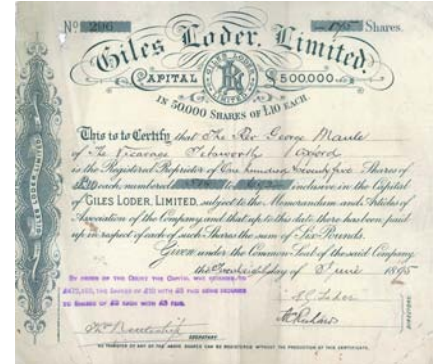 No 296 175 Shares.
Giles Loder, Limited
CAPITAL £500,000
GILES LODER
LIMITED
IN 50,000 SHARES OF £10 EACH.
This is to Certify that The Rev George Maule
of The Vicarage Tetsworth Oxford
is the Registered Proprietor of One hundred Seventy five Shares of
£10 each, numbered to inclusive in the Capital
of GILES LODER, LIMITED, subject to the Memorandum and Articles of
Association of the Company and that up to this date there has been paid
up in respect of each of such Shares the sum of Six Pounds.
Given under the Common Seal of the said Company
the day of June 1895
BY ORDER OF THE COURT THE CAPITAL WAS REDUCED TO
THE SHARES OF £10 WITH PAID BEING REDUCED
TO SHARES OF EACH WITH PAID.
Loder
DIRECTORS.
SECRETARY
NO TRANSFER OF ANY OF THE ABOVE SHARES CAN BE REGISTERED WITHOUT THE PRODUCTION OF THIS CERTIFICATE.
GILES LODER, LIMITED